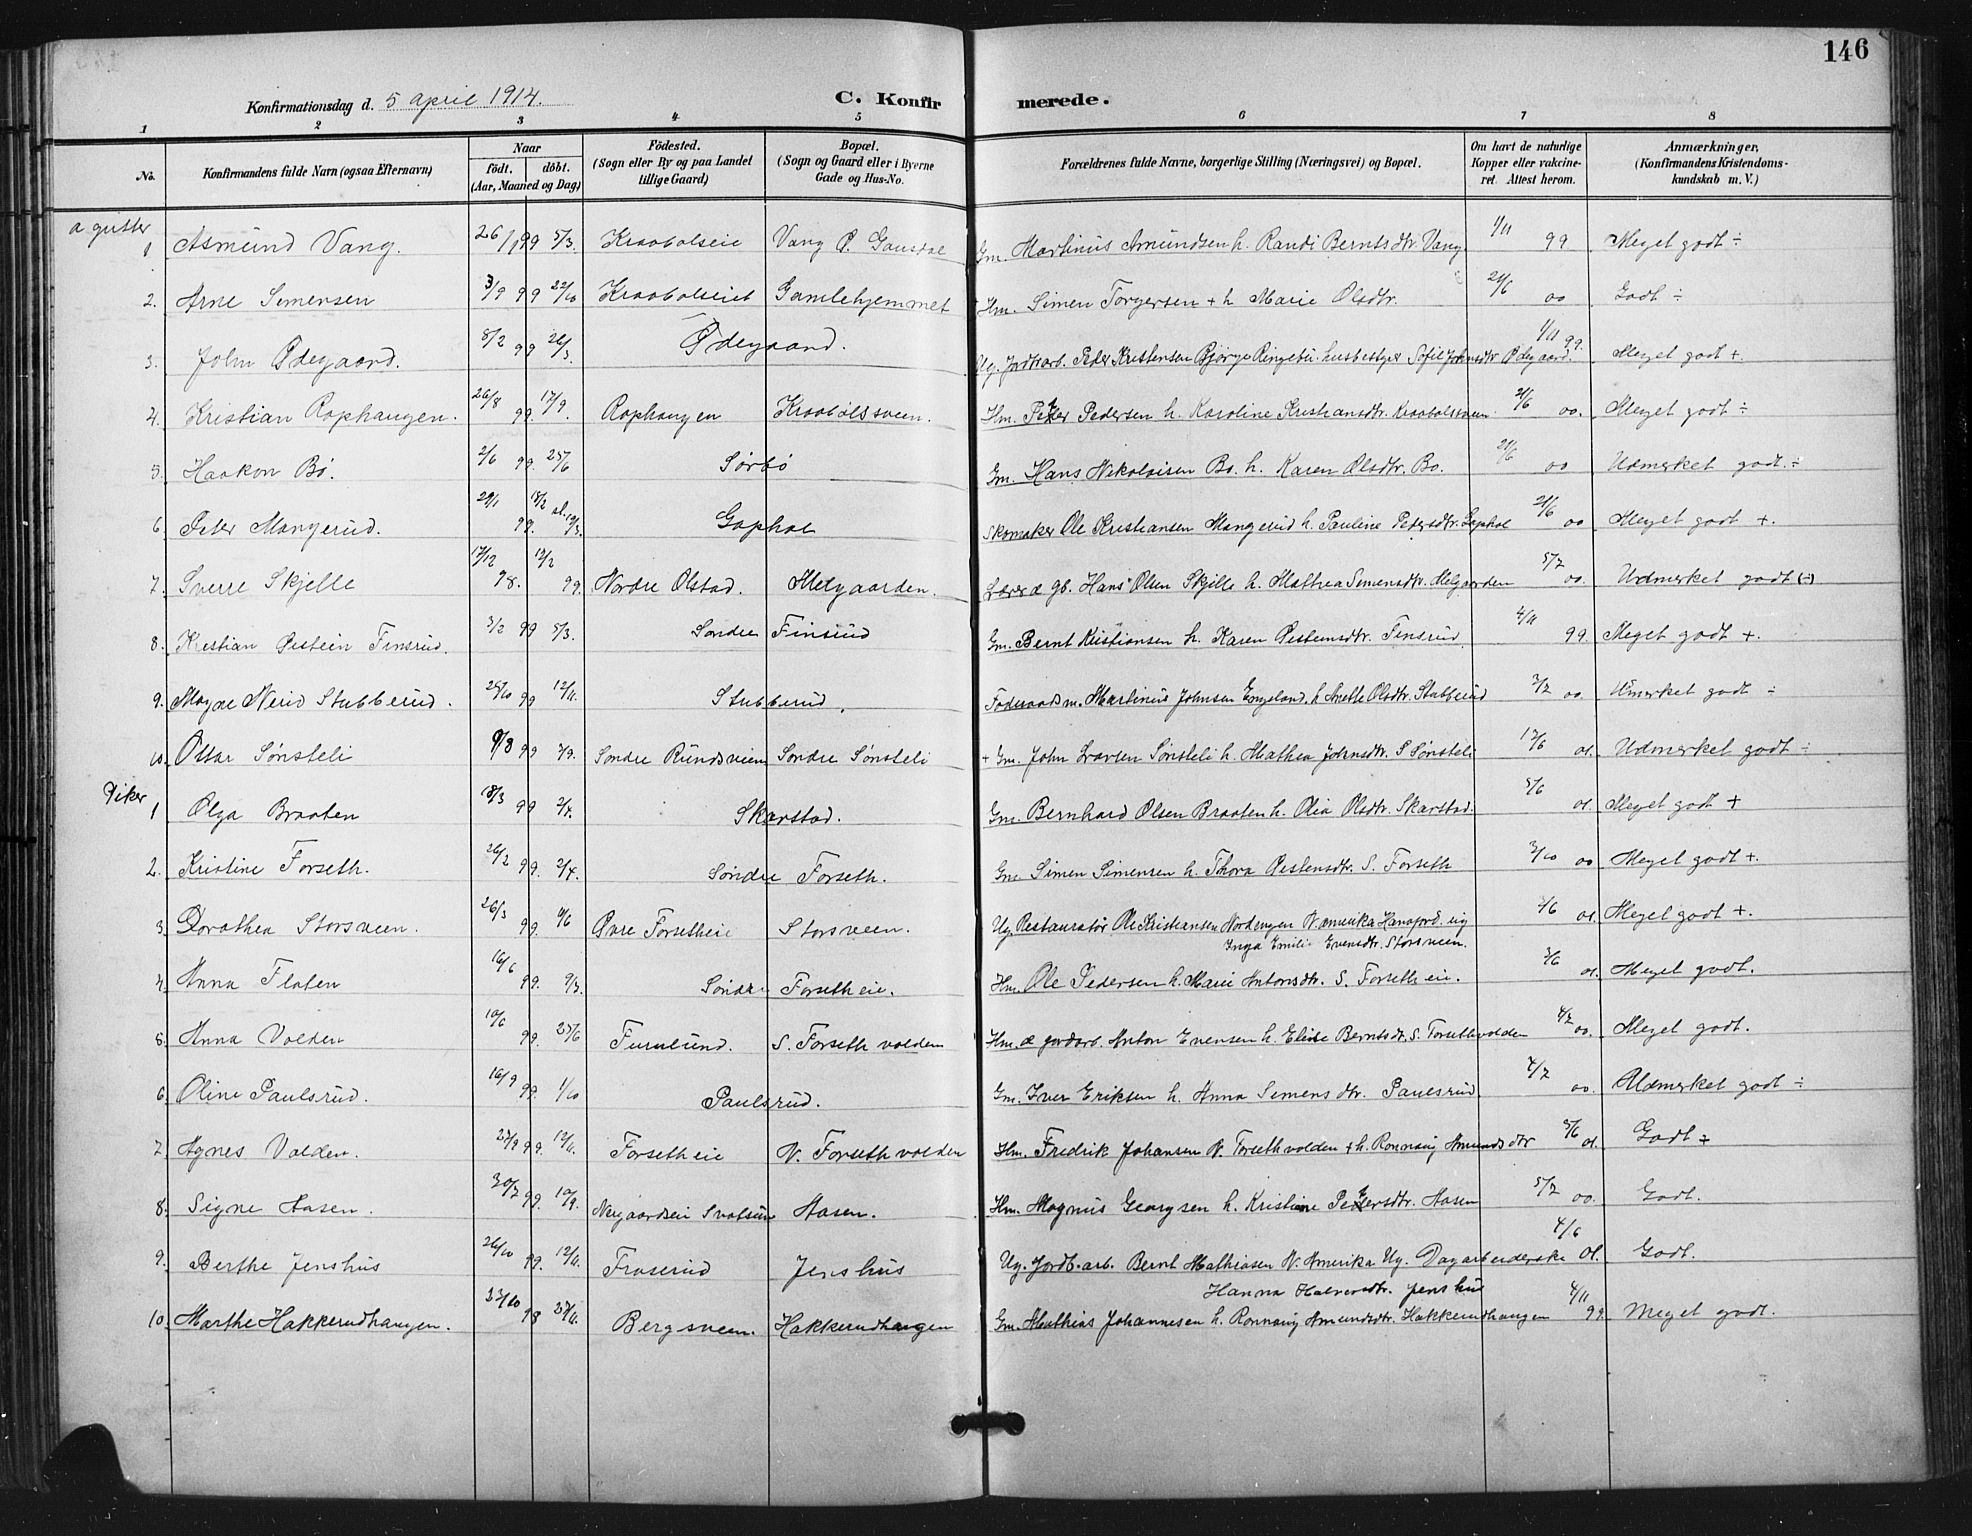 146
Konfirmationsdag d. 5 april 1914. C. Konfirmerede.
1 2 3 4 5 6 7 8
No. Konfirmandens fulde Navn (ogsaa Efternavn) Naar födt. döbt. (Aar, Maaned og Dag) Födested. (Sogn eller By og paa Landet tillige Gaard) Bopæl. (Sogn og Gaard eller i Byerne Gade og Hus-No. Forældrenes fulde Navne, borgerlige Stilling (Næringsvei) og Bopæl. Om havt de naturlige Kopper eller vakcineret. Attest herom. Anmærkninger, (Konfirmandens Kristendomskundskab m. V.)
a gutter
1 Asmund Vang. 26/1 99 5/3. Kraabølseie Vang Ø. Gausdal Gm. Martinus Amundsen h. Randi Berntsdtr. Vang 1/11 99. Meget godt ÷
2. Arne Simensen 3/9 99 22/10 Kraabølseiet Gamlehjemmet Hm. Simen Torgersen + h Marie Olsdtr. 21/6 00 Godt ÷
3. John Ødegaard. 8/2 99 26/3. Ødegaard. Ug. Jordarb. Peder Kristensen Bjørge Ringebu. husbestyer Sofie Johnsdtr Ødegaard. 1/11 99. Meget godt +.
4. Kristian Rophaugen. 26/8 99. 17/9. Rophaugen Kraabølssveen. Hm. Peder Pedersen h. Karoline Kristiansdtr. Kraabølssveen. 21/6 00. Meget godt ÷
5. Haakon Bø. 2/6 99. 25/6 Sørbø Gm. Hans Nikolaisen Bø. h. Karen Olsdtr. Bø. 21/6 00 Udmerket godt. ÷
6. Peter Mangerud. 29/1 99. 18/2 st. 19/3. Gaphol Skomaker Ole Kristiansen Mangerud h. Pauline Pedersdtr. Gaphol 21/6 00 Meget godt +.
7. Sverre Skjelle 17/12 98. 12/2 99. Nordre Olstad. Melgaarden. Lærer & gb. Hans Olsen Skjelle h. Mathea Simensdtr. Melgaarden 5/7 00. Udmerket godt (÷)
8. Kristian Østein Finsrud. 3/2 99 5/3. Søndre Finsrud Gm. Bernt Kristiansen h. Karen Østensdtr. Finsrud. 4/11 99. Meget godt +.
9. Magne Nerid Stubberud. 25/10 99 12/11. Stubberud. Føderaadsm. Martinus Johnsen Engeland. h Anette Olsdtr. Stubberud 3/7 00. Umerket godt ÷
10. Ottar Sønsteli 9/8 99 3/9. Søndre Rundsveen Søndre Sønsteli + Gm. John Larsen Sønsteli h. Mathea Johnsdtr. S Sønsteli 17/6 01. Udmerket godt ÷
Piker
1 Olga Braaten 18/3 99 2/4. Skarstad. Gm. Bernhard Olsen Braaten h. Olia Olsdtr. Skarstad. 5/6 01. Meget godt +
2. Kristine Forseth. 26/2 99. 2/4. Søndre Forseth. Gm Simen Simensen h. Thora Østensdtr. S. Forseth 3/10 00 Meget godt +.
3. Dorothea Storsveen. 26/3 99. 4/6 Øvre Forsetheie Storsveen. Ug. Restauratør Ole Kristiansen Nordengen N. amerika Hanafjord. ug
Inga Emilie Evensdtr. Storsveen. 4/6 01. Meget godt +.
4. Anna Flaten 16/6 99. 9/7. Søndre Forsetheie. Hm. Ole Pedersen h. Marie Antonsdtr. S. Forsetheie. 3/6 01. Meget godt.
5. Anna Volden 10/6 99. 25/6 Furulund. S. Forsethvolden Hm. & jordarb. Anton Evensen h. Elise Berntsdt. S. Forsethvolden 4/7 00. Meget godt.
6. Oline Paulsrud. 16/9 99. 1/10 Paulsrud. Gm. Iver Eriksen h. Anna Simensdtr. Paulsrud 4/7 00. Udmerket godt ÷
7. Agnes Volden. 23/9 99. 12/11. Forsetheie N. Forsethvolden Hm. Fredrik Johansen N. Forsethvolden + h. Rønnaug Amundsdtr 5/6 01. Godt ÷
8. Signe Aasen. 30/7 99. 10/9. Nergaardseie Svatsum Aasen. Hm. Magnus Georgsen h. Kristine Pedersdtr. Aasen 5/7 00. Godt.
9. Berthe Jenshus 26/10 99. 12/11. Fraserud Jenshus Ug. Jordb. arb. Bernt Mathiasen N. Amerika Ug. Dagarbeiderske
Hanna Halvorsdtr. Jenshus 4/6 01. Godt.
10. Marthe Hakkerudhaugen. 23/10 98 27/11. Bergsveen. Hakkerudhaugen Gm. Mathias Johannesen h. Rønnaug Amundsdtr. Hakkerudhaugen 4/11 99. Meget godt.